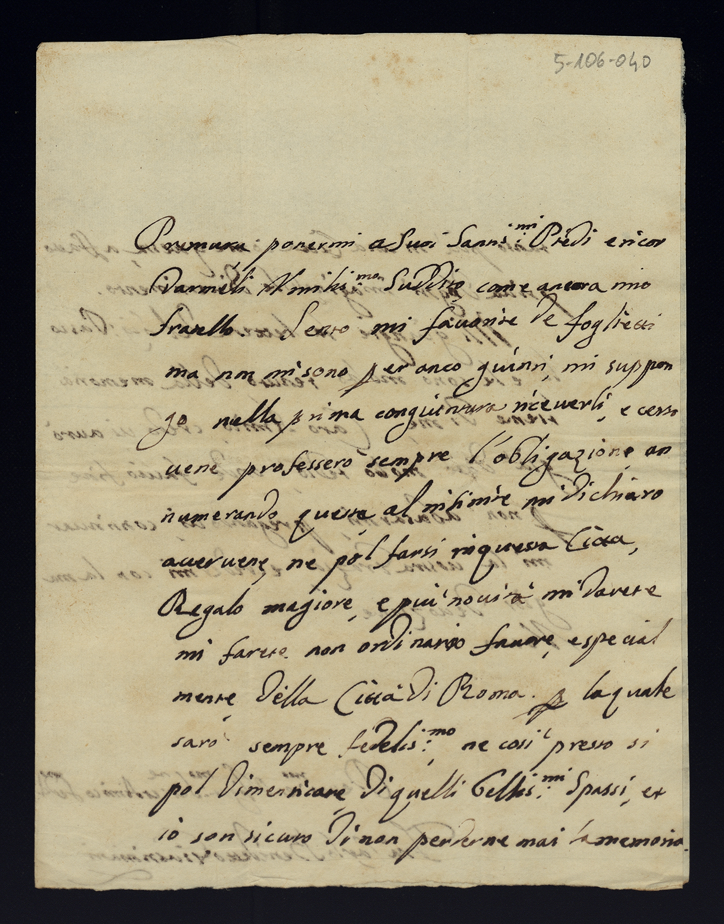 5-106-040
Premura ponermi a Suoi Santi:mi Piedi e ricor
darmeli Umilis:mo Suddito come ancora mio
fratello. Lei mi favorite de foglietti
ma non mi sono per anco giunti, mi suppon
go nella prima congiuntura riceverli, e cer
vene professerò sempre l'obligazione, an
numerando questa al mi dichiaro
avervene, ne pol farsi in questa Città,
Regalo magiore, e più novità mi darete
mi farete non ordinario favore, e special
mente della Città di Roma. p la quale
sarò sempre fedelis:mo ne così presto si
pol dimenticare di quelli bellis:mi Spassi, et
io son sicuro di non perderne mai la memoria